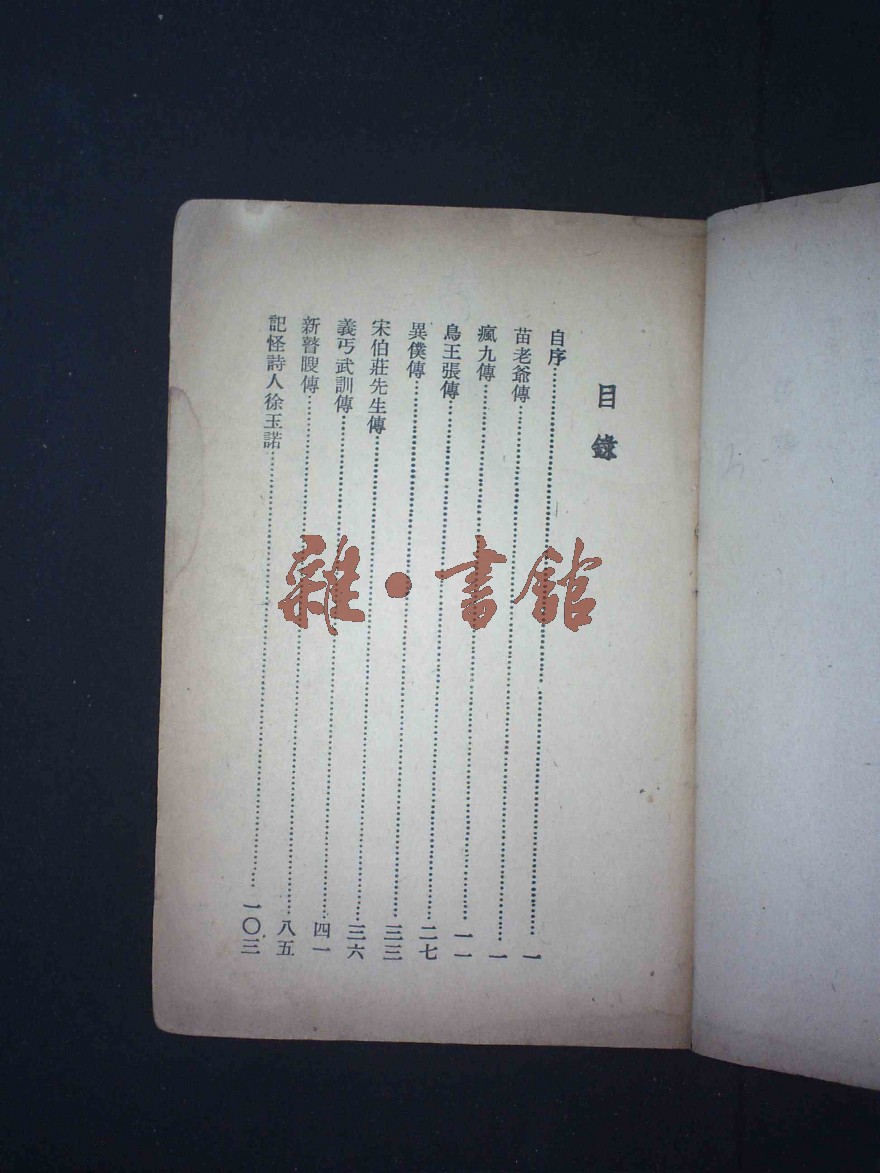 目錄
自序……一
苗老爺傳……一
瘋九傳……一一
鳥王張傳……二七
異僕傳……三三
宋伯莊先生傳……三六
義丐武訓傳……四一
新瞽瞍傳……八五
記怪詩人徐玉諾……一〇三
雜·書館